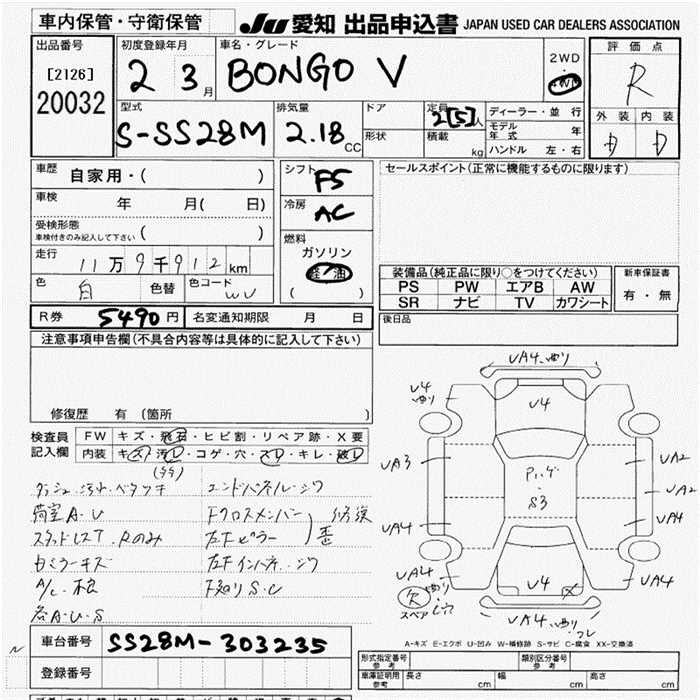 車内保管・守衛保管
JU 愛知 出品申込書 JAPAN USED CAR DEALERS ASSOCIATION
出品番号
[2126]
20032
初度登録年月
2 3月
車名・グレード
BONGO V
2WD
4WD
評価点
R
外装 内装
D D
型式
S-SS28M
排気量
2.18 CC
ドア
形状
定員
2[5]人
積載
kg
ディーラー・並行
モデル年式 年
ハンドル 左・右
車歴
自家用・( )
車検 年 月( 日)
受検形態
車検付きのみ記入して下さい ( )
走行
11万9千912km
色 白 色替 色コード WU
シフト F5
冷房 AC
燃料
ガソリン
軽油
( )
セールスポイント(正常に機能するものに限ります)
装備品(純正品に限り○をつけてください)
PS PW エアB AW
SR ナビ TV カワシート
新車保証書
有・無
R券 5490円 名変通知期限 月 日
後日品
注意事項申告欄(不具合内容等は具体的に記入して下さい)
修復歴 有 (箇所 )
検査員記入欄
FW キズ・飛石・ヒビ割・リペア跡・X要
内装 キズ・汚D・コゲ・穴・スD・キレ・破D
ダッシュ汚れ・ベタツキ
荷室A・U
Rのみ
ミラーキズ
A/C・
各A・U・S
エンドパネル・シワ
Fクロスメンバー
左Fピラー
修復歴
左Fインパネ・シワ
下廻りS・C
UA4
U4
U4
UA3
UA2
UA2
UA4
UA4
S3
UA4
U4
UA4
欠
スペア
UA4
A-キズ E-エクボ U-凹み W-補修跡 S-サビ C-腐食 XX-交換済
車台番号 SS28M-303235
登録番号
形式指定番号
参考
類別区分番号
参考
車庫証明用
参考
長さ cm 幅 cm 高さ cm